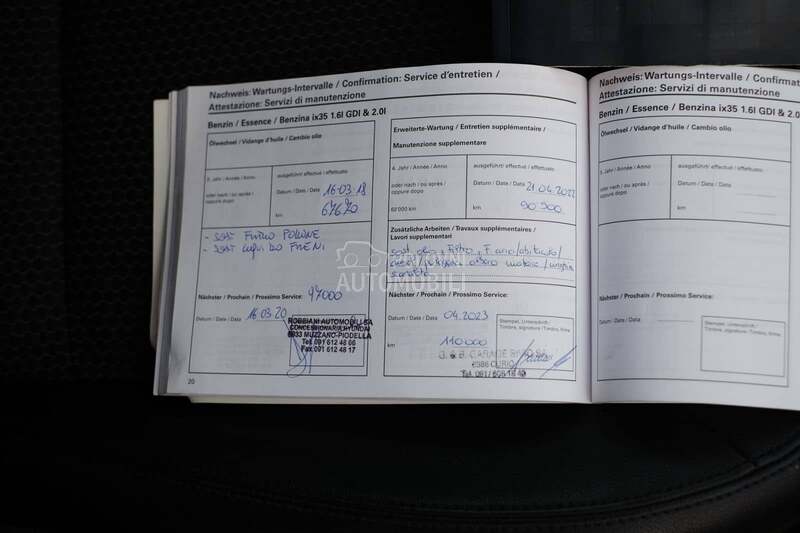 Nachweis: Wartungs-Intervalle / Confirmation: Service d'entretien /
Attestazione: Servizi di manutenzione
Benzin / Essence / Benzina ix35 1.6l GDI & 2.0l
Ölwechsel / Vidange d'huile / Cambio olio
3. Jahr / Année / Anno
ausgeführt / effectué / effettuato
oder nach / ou après /
oppure dopo
Datum / Date / Data 16-03-18
km 67670
- SOST FILTRO POLLINE
- SOST LIQUIDO FRENI
Nächster / Prochain / Prossimo Service:
97000
Datum / Date / Data 16 03 20
ROBBIANI AUTOMOBILI SA
CONCESSIONARIA HYUNDAI
6933 MUZZANO-PIODELLA
Tel. 091 612 48 66
Fax 091 612 48 17
20
Erweiterte-Wartung / Entretien supplémentaire /
Manutenzione supplementare
4. Jahr / Année / Anno
ausgeführt / effectué / effettuato
oder nach / ou après /
oppure dopo
Datum / Date / Data 21.04.2022
62'000 km
km 90'900
Zusätzliche Arbeiten / Travaux supplémentaires /
Lavori supplementari
sost. olio, Filtro, F. aria/abitacolo/
Nächster / Prochain / Prossimo Service:
Datum / Date / Data 04.2023
km 110'000
Stempel, Unterschrift /
Timbre, signature / Timbro, firma
6986 CURIO
POLOVNI
AUTOMOBILI
Nachweis: Wartungs-Intervalle / Confirmation
Attestazione: Servizi di manutenzione
Benzin / Essence / Benzina ix35 1.6l GDI & 2.0l
Ölwechsel / Vidange d'huile / Cambio olio
5. Jahr / Année / Anno
ausgeführt / effectué / effettuato
oder nach / ou après /
oppure dopo
Datum / Date / Data
km
Nächster / Prochain / Prossimo Service:
Datum / Date / Data
Stempel, Unterschrift /
Timbre, signature / Timbro, firma